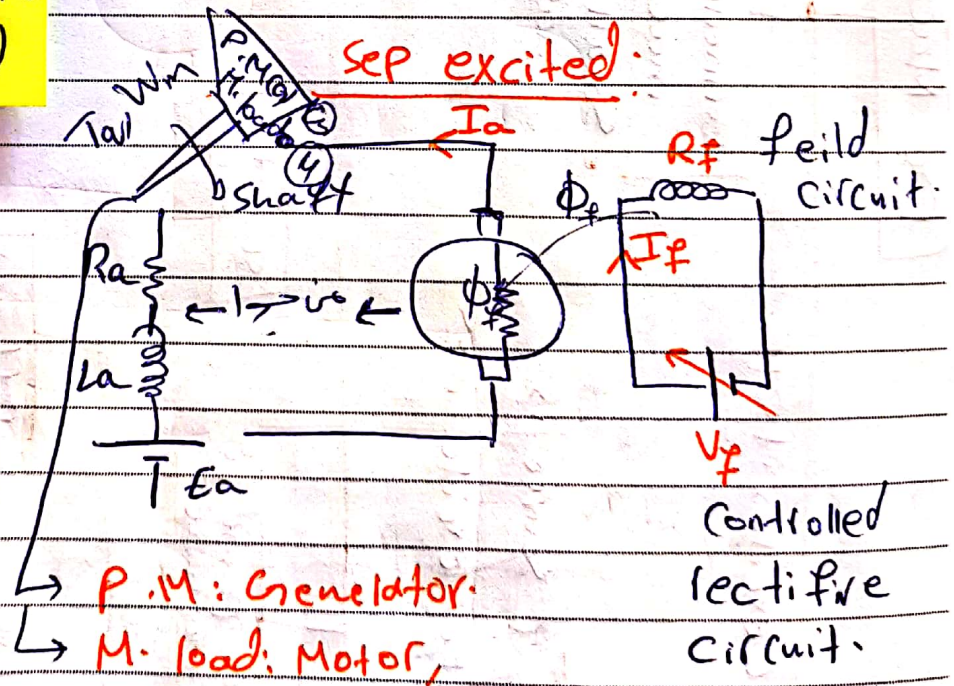 Sep excited.
P.M(G)
M. load
Wm
Ia
Rf feild
circuit.
Shaft
Φf
If
Ra
Φf
La
Ea
Vf
Controlled
rectifire
circuit.
P.M: Generator.
M. load: Motor,